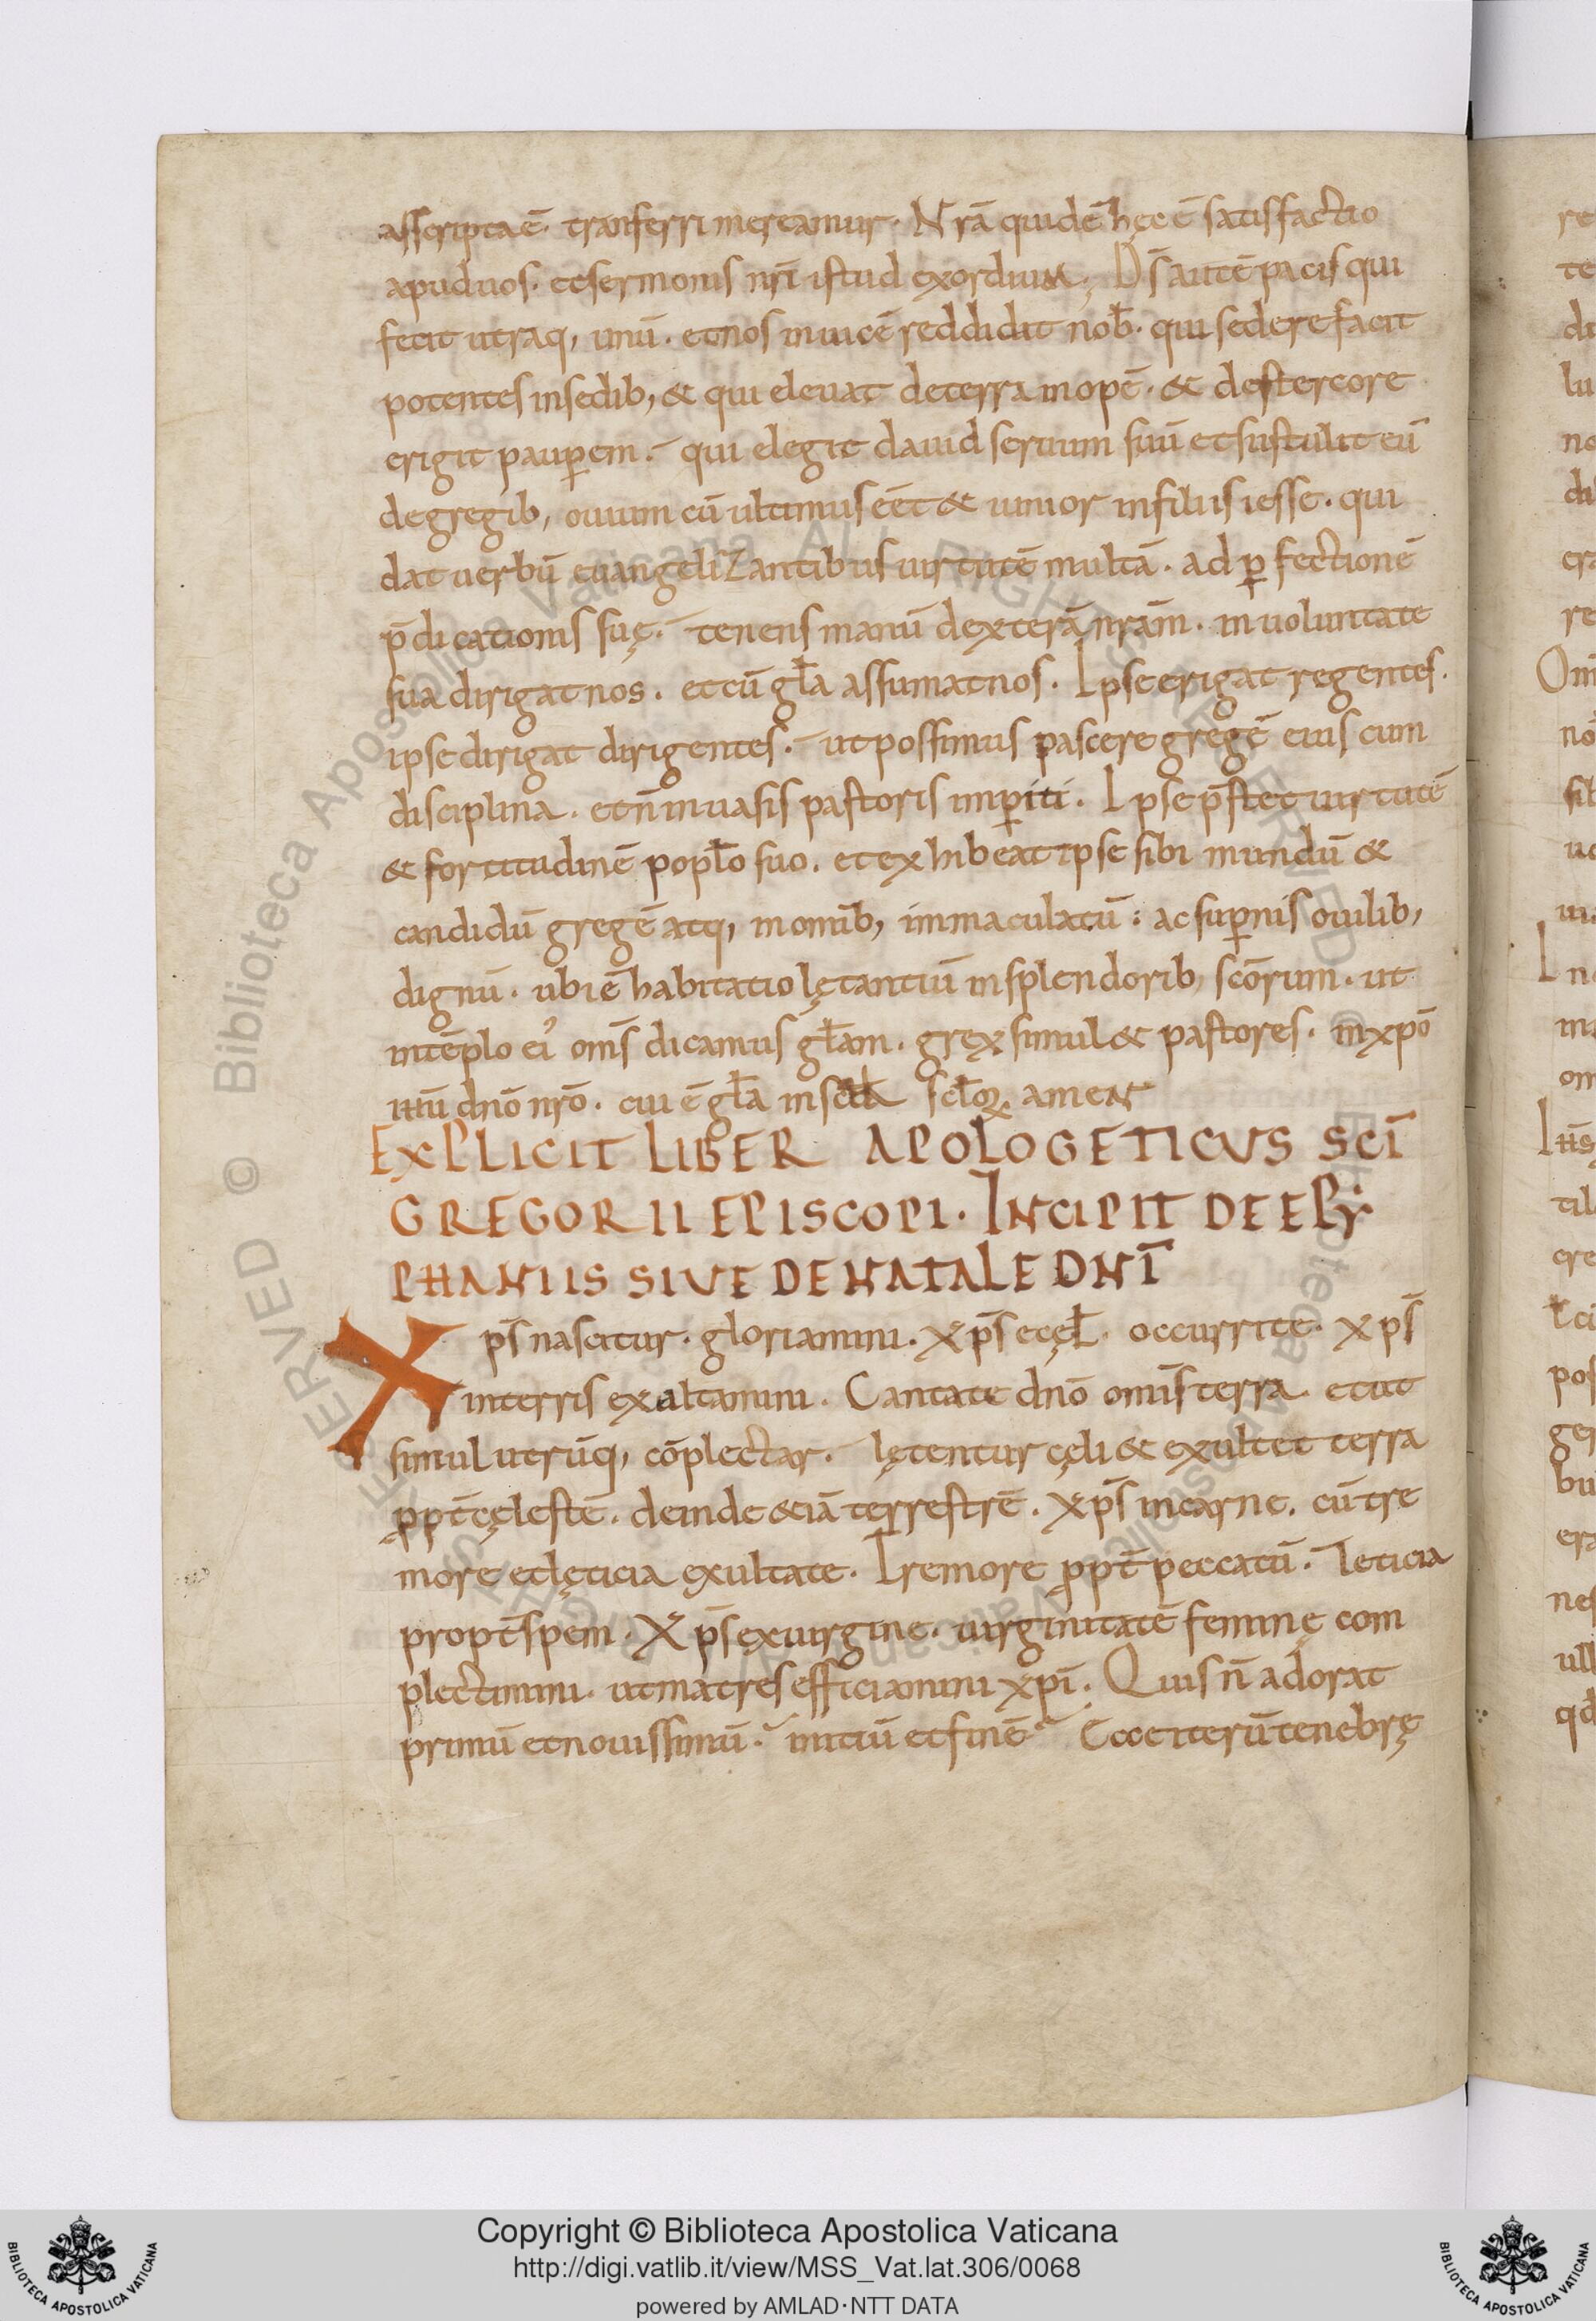 asscripta ē. tranferri mereamur. Nrā quidē hęc ē satisfactio
apud uos. et sermonis nr̄i istud exordium. Ds̄ autē pacis qui
fecit utraq, unū. et nos inuicē reddidit nob̄. qui sedere facit
potentes in sedib, & qui eleuat de terra inopē. & de stercore
erigit paup̄em. qui elegit dauid seruum suū et sustulit eū
de gregib, ouium cū ultimus eēt & iunior in filiis iesse. qui
dat uerbū euangelizantibus uirtutē multā. ad p̄fectionē
p̄dicationis suę. tenens manū dexterā nrām. in uoluntate
sua dirigat nos. et cū gl̄a assumat nos. Ipse erigat regentes.
ipse dirigat dirigentes. ut possimus pascere gregē eius cum
disciplina. et n̄ in uasis pastoris imp̄iti. Ipse p̄stet uirtutē
& fortitudinē popl̄o suo. et exhibeat ipse sibi mundū &
candidū gregē atq, in omīb, immaculatū: ac sup̄nis ouilib,
dignū. ubi ē habitatio lętantiū in splendorib, scōrum. ut
in tēplo ei' oms̄ dicamus gl̄am. grex simul & pastores. in xpō
iħu dnō nrō. cui ē gl̄a in scła scl̄oꝝ. amen
EXPLICIT LIBER APOLOGETICVS SCI
GREGORII EPISCOPI. INCIPIT DE EPY
PHANIIS SIVE DE NATALE DNI
Xps̄ nascitur. gloriamini. xps̄ e cęł. occurrite. xps̄
in terris exaltamini. Cantate dnō omis̄ terra. et ut
simul utrūq, cōplectar. lętentur cęli & exultet terra
ppt̄ cęlestē. deinde &iā terrestrē. xps̄ in carne. cū tre
more et lęticia exultate. Tremore ppt̄ peccatū. leticia
propt̄ spem. Xps̄ ex uirgine. uirginitatē feminę com
plectimini. ut matres efficiamini xpī. Quis n̄ adorat
primū et nouissimū. initiū et finē Ecce iterū tenebrę
Copyright © Biblioteca Apostolica Vaticana
http://digi.vatlib.it/view/MSS_Vat.lat.306/0068
powered by AMLAD·NTT DATA